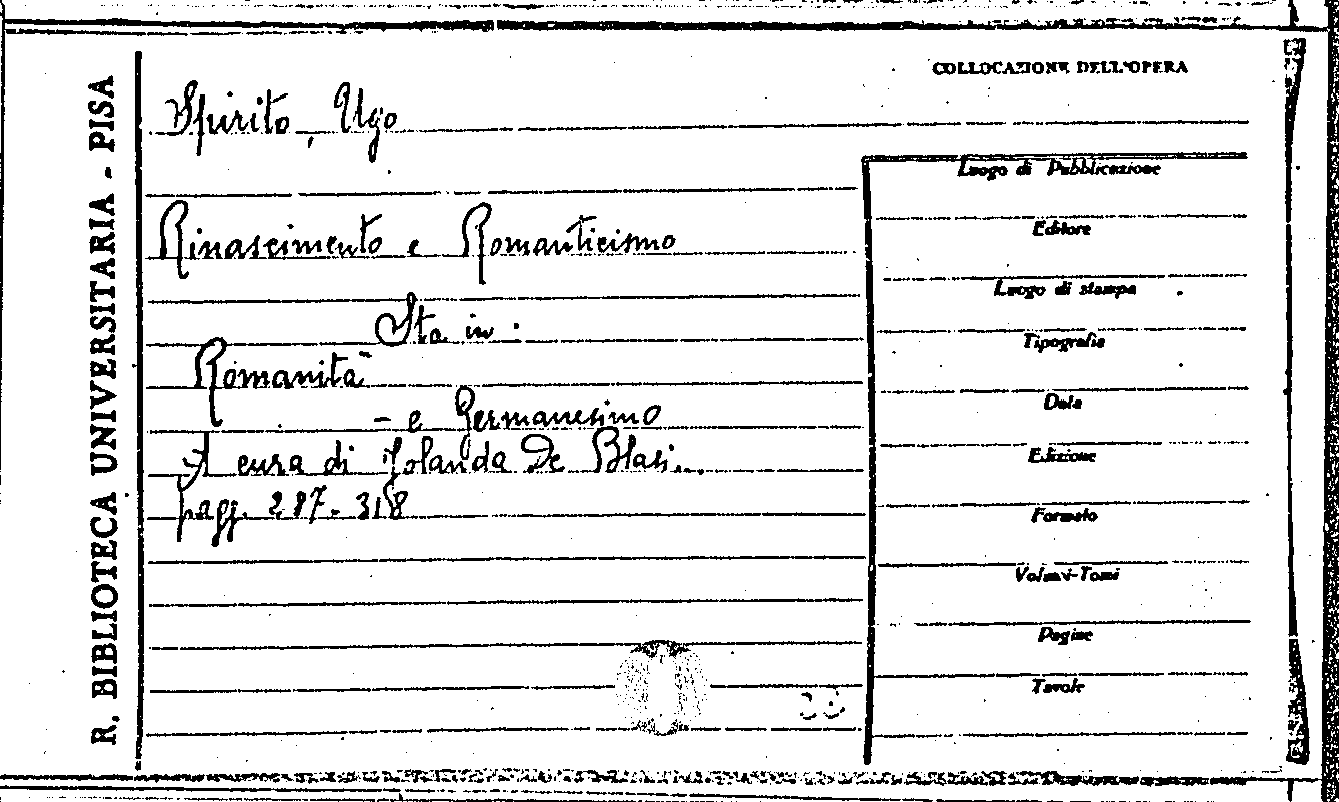 R. BIBLIOTECA UNIVERSITARIA - PISA
COLLOCAZIONE DELL'OPERA
Spirito, Ugo
Rinascimento e Romanticismo
Sta in:
Romanità
- e Germanesimo
A cura di Jolanda De Blasi..
pagg. 287-318
Luogo di Pubblicazione
Editore
Luogo di stampa
Tipografia
Data
Edizione
Formato
Volumi-Tomi
Pagine
Tavole